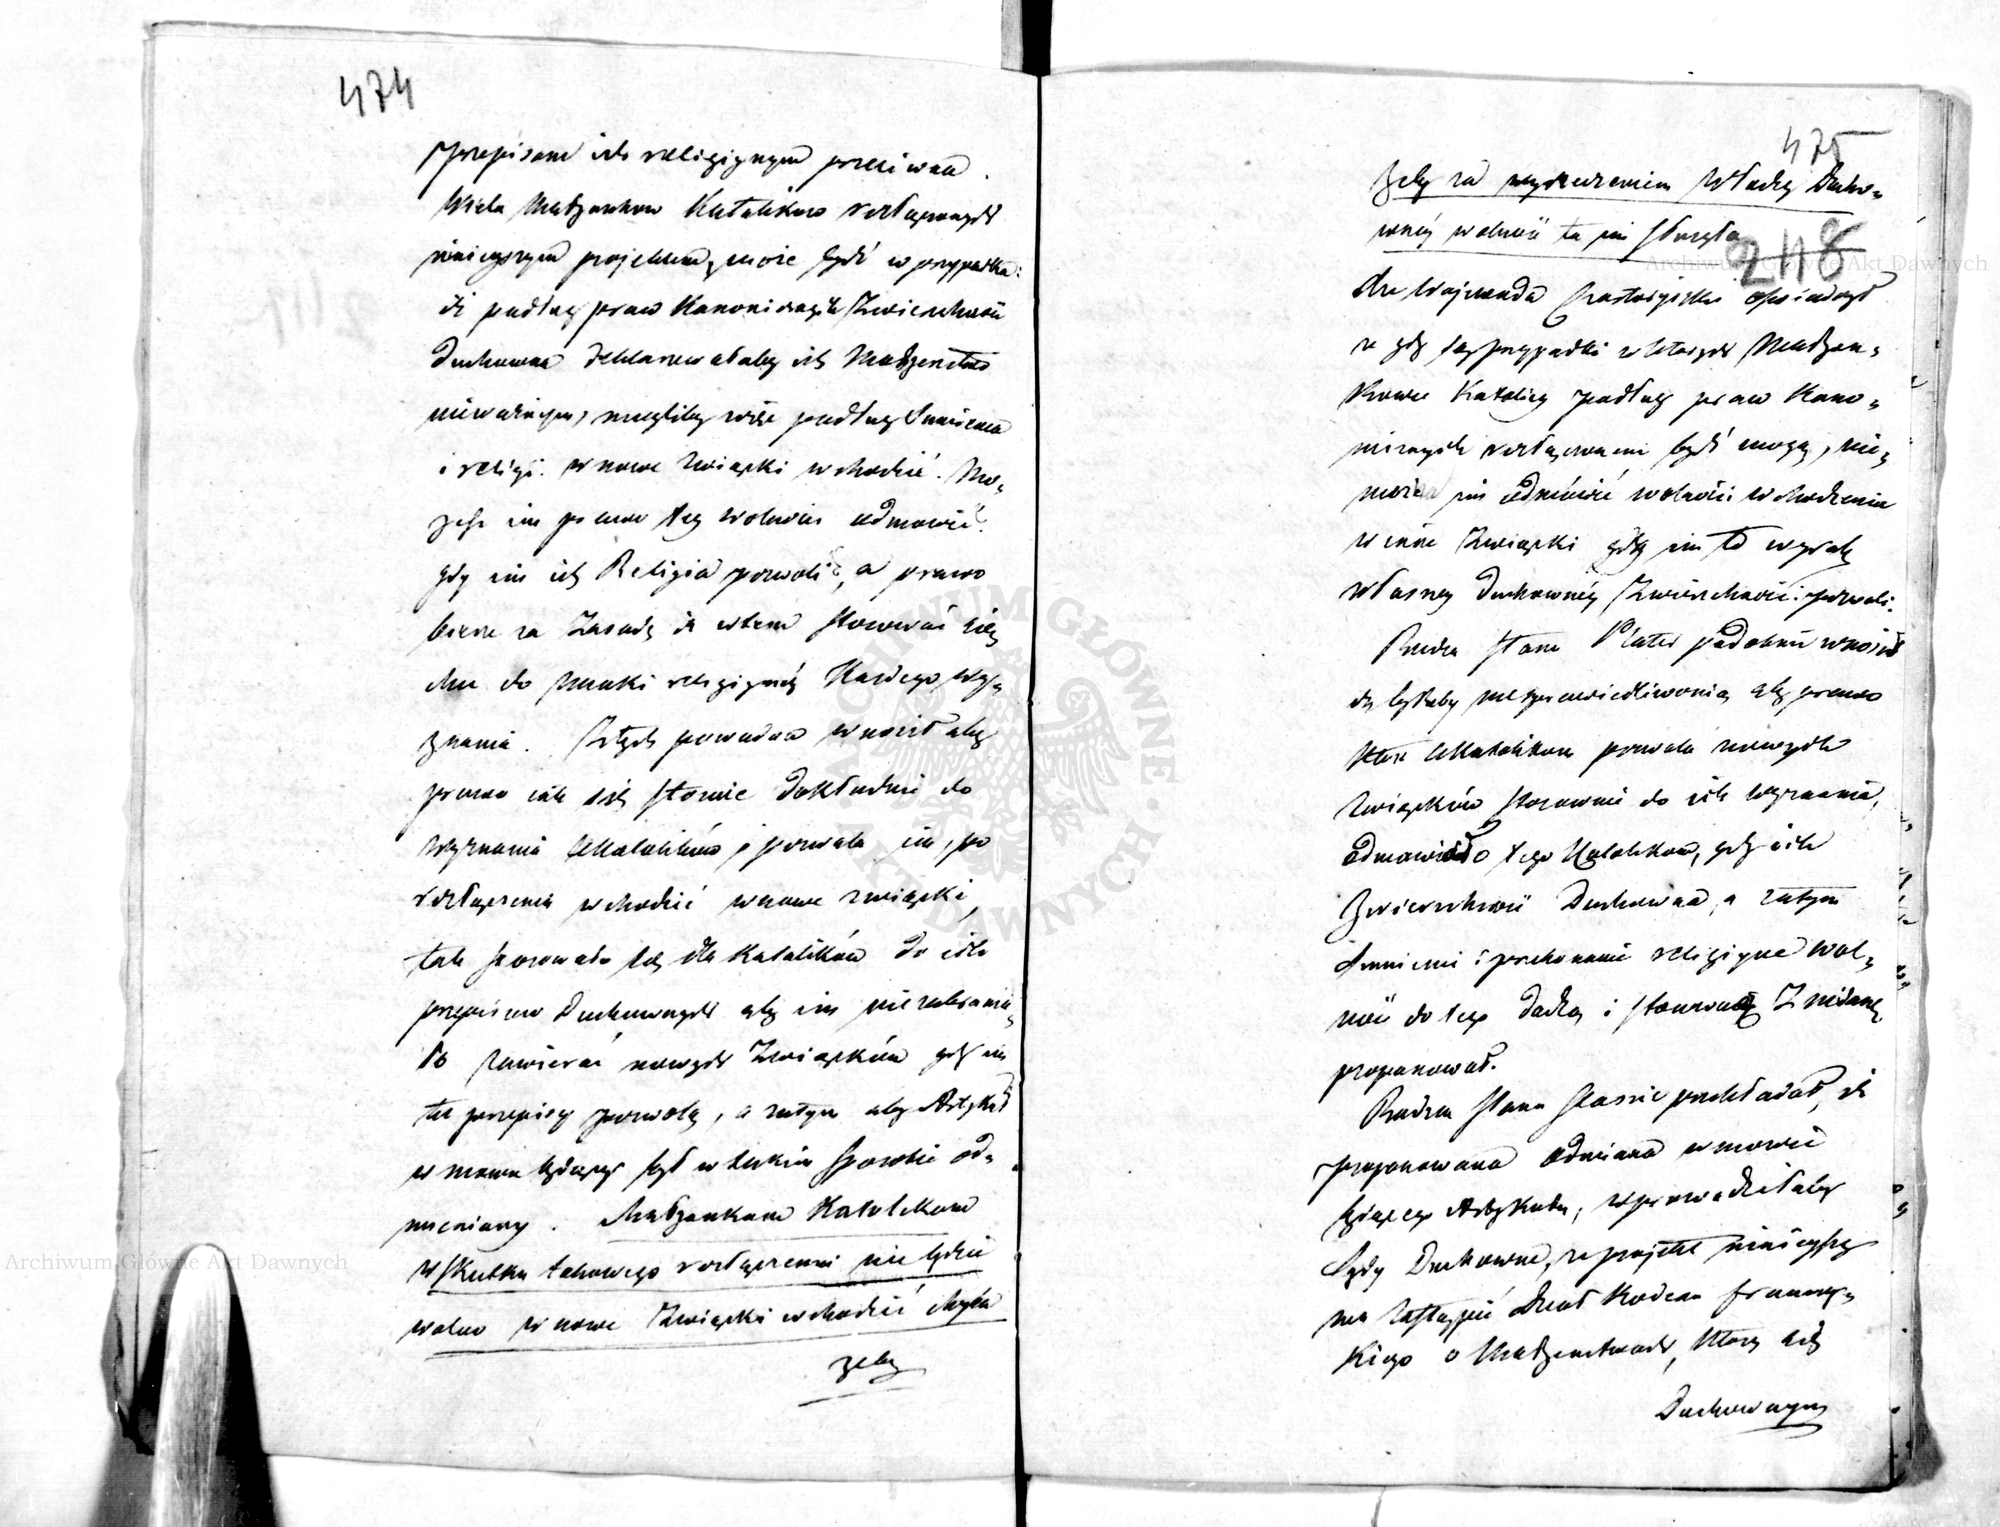 474
przepisem ich religijnym przeciwna.
Wiele Małżonkow Katolikow rozłączonych
niniejszym projektem, może bydź w przypadku:
iż podług praw Kanonicznych Zwierzchność
Duchowna deklarowałaby ich Małżeństwo
nieważnym, mogliby więc podług Sumienia
i religi w nowe związki wchodzić. Mo-
że im prawo tey wolności odmowić?
gdy im ich Religia pozwoli, a prawo
bierze za Zasadę iż w tem stosować się
chce do nauki religijnéy Każdego wy-
znania. Z tych powodow wnosił aby
prawo iak się stosuie dokładnie do
wyznania Akatolików i pozwala im, po
rozłączeniu wchodzić w nowe związki,
tak stosowało się dla Katolików do ich
przepisow Duchownych aby im nie zabrania-
ło zawierać nowych Związków gdy im
te przepisy pozwolą, a zatym aby Artykuł
w mowie będący był w takim sposobie od-
mieniony. Małżonkom Katolikom
w skutku takowego rozłączenia nie będzie
wolno w nowe Związki wchodzić chyba
żeby
475
żeby za wyrzeczeniem Władzy Ducho-
wnéy wolność ta im służyła
248
Xże Woiewoda Czartoryiski oświadczył
że gdy są przypadki w których Małżon-
kowie Katolicy podług praw Kano-
nicznych rozłączeni bydź mogą, nie-
można im odmówić wolności wchodzenia
w inne Związki gdy im to wyrok
własney Duchownéy Zwierzchności pozwoli.
Radca Stanu Plater podobnie wnosił
iż byłoby niesprawiedliwością aby prawo
które Akatolikom pozwala nowych
związków stosownie do ich wyznania,
odmowiło tego Katolikom, gdy ich
Zwierzchność Duchowna, a zatym
Sumienie i przekonanie religijne wol-
ność do tego dadzą i stosowną Zmianę
proponował.
Radca Stanu Staszic przekładał, iż
proponowana odmiana w mowie
będącego Artykułu, wprowadziłaby
Sądy Duchowne, że projekt niniejszy
ma zastąpić dział Kodexu francuz-
kiego o Małżeństwach, który się
Duchownym